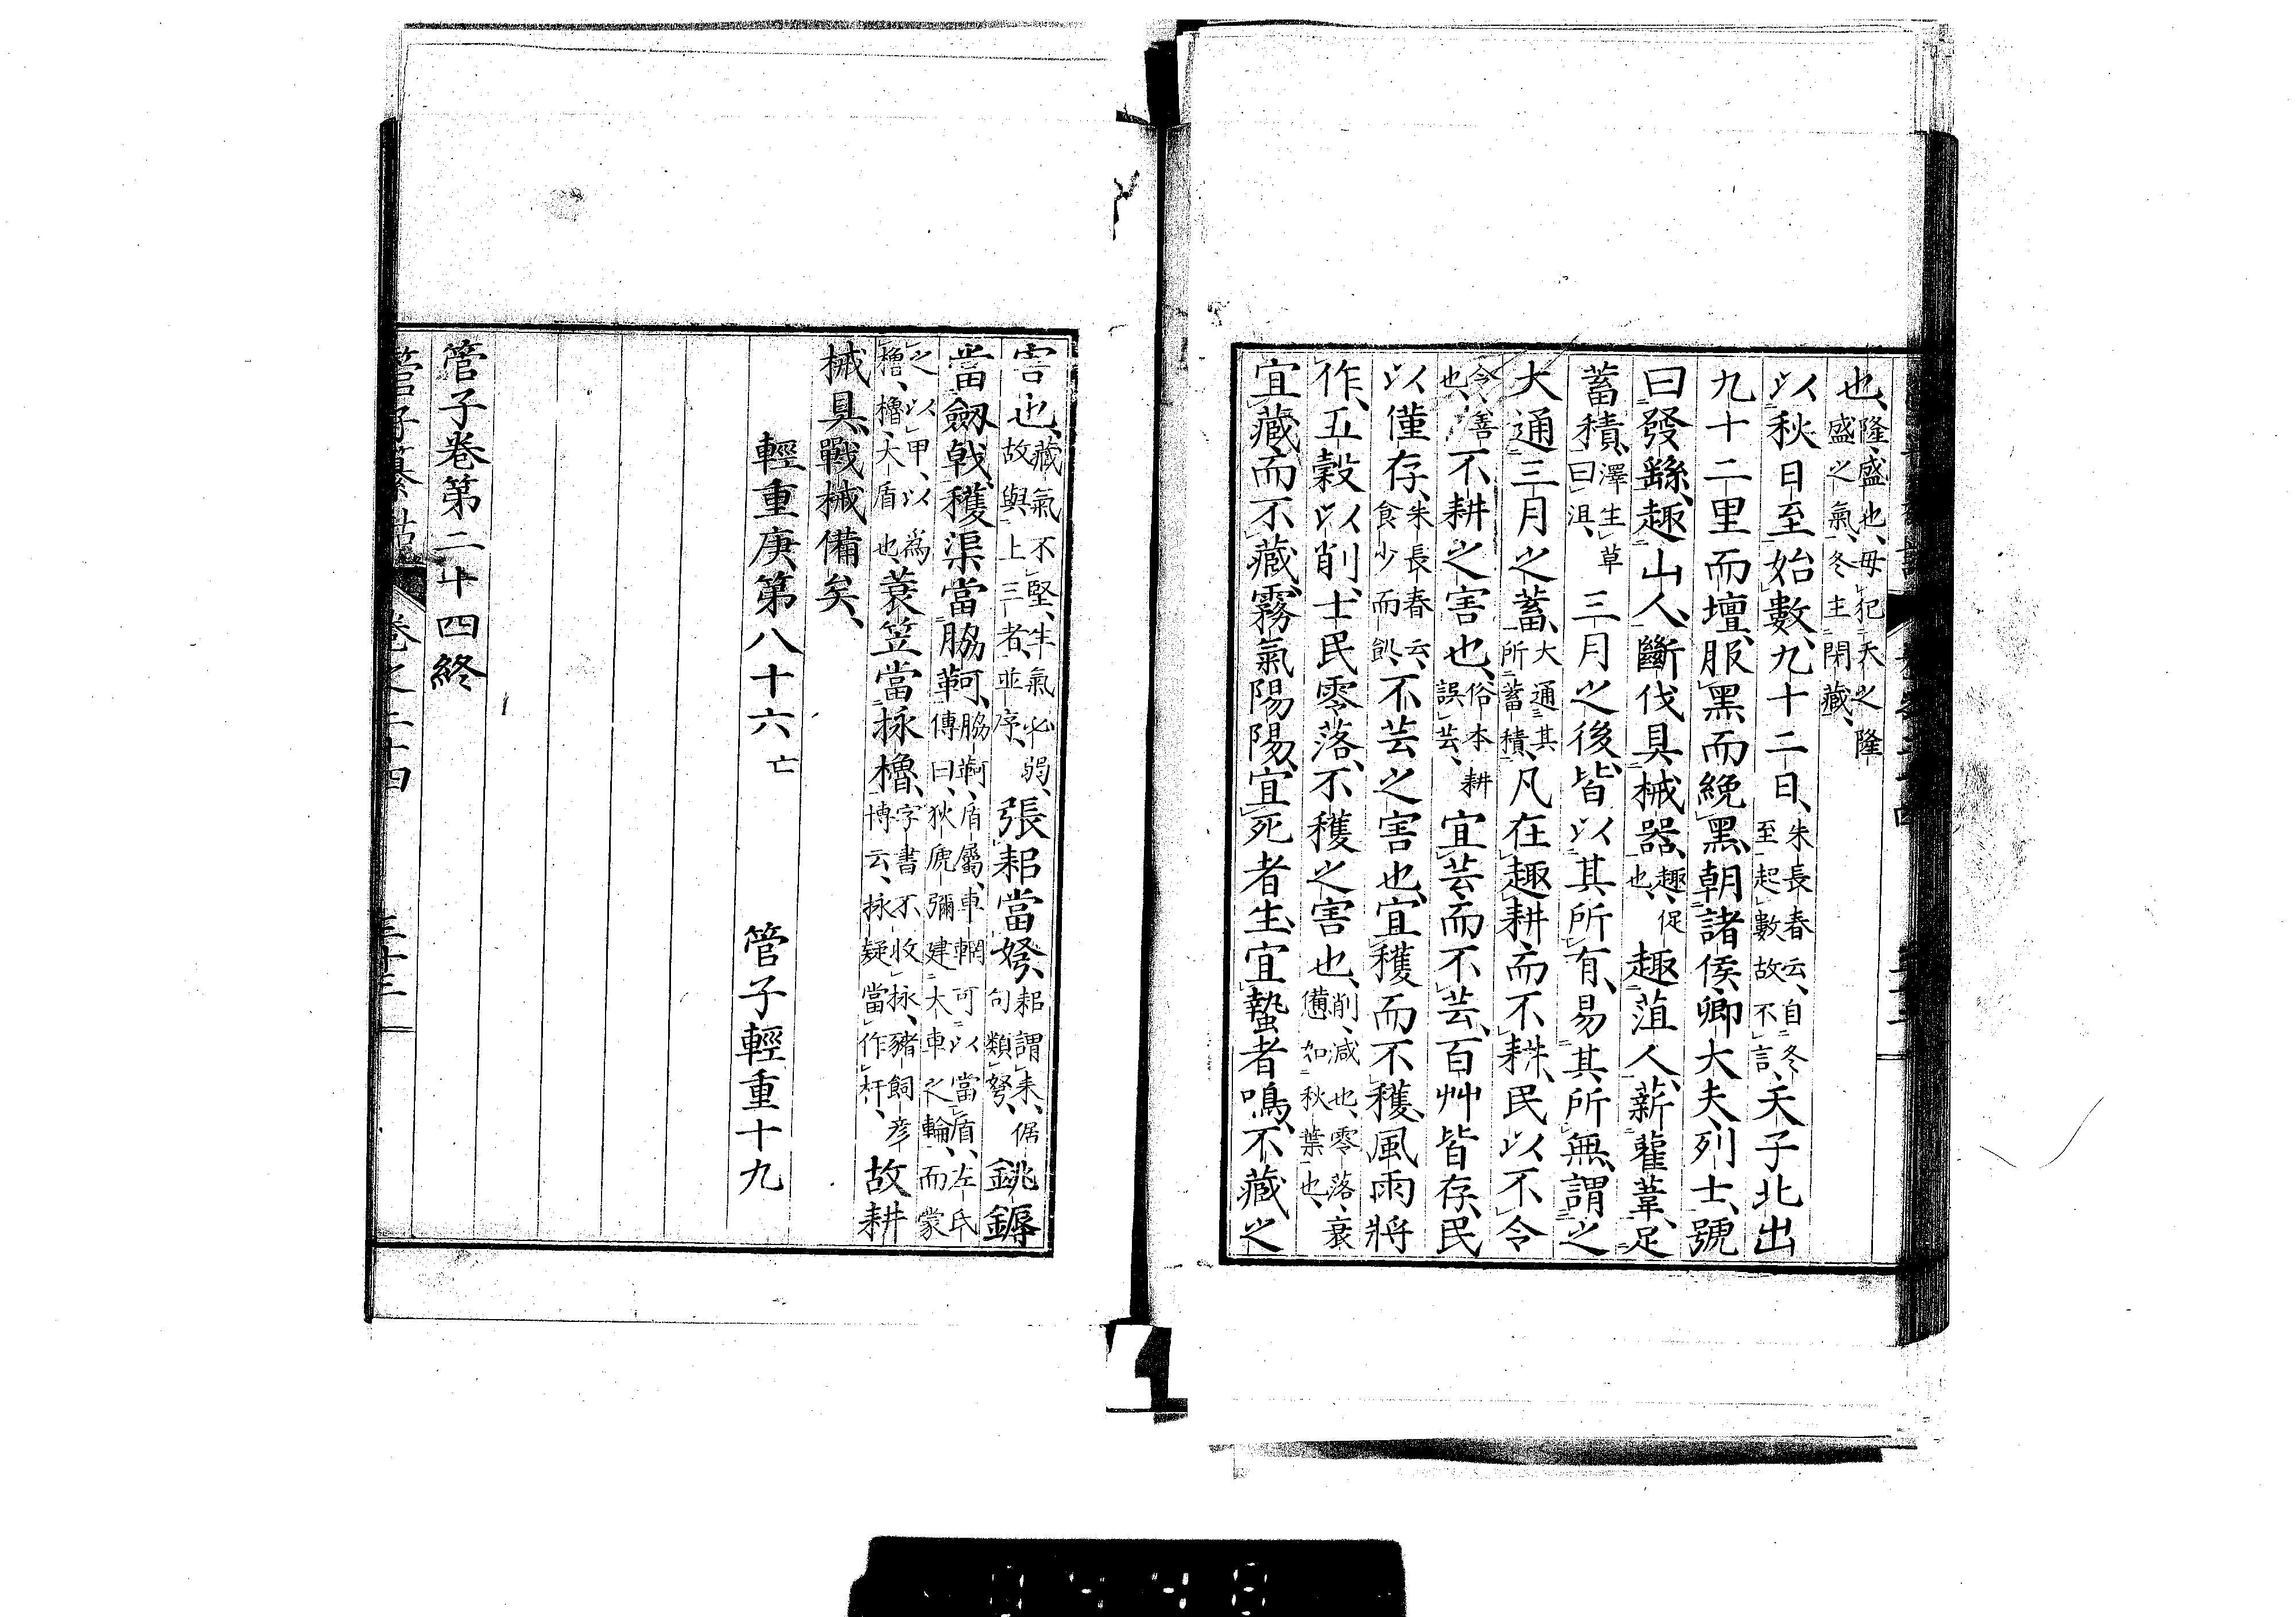 也、隆、盛也、毋犯天之隆盛之氣、冬主閉藏、
以秋日至始數、九十二日、朱長春云、自冬至起數故不言、天子北出
九十二里而壇、服黑而絻黑、朝諸侯卿大夫列士、號
曰發繇、趣山人、斷伐具械器、趣、促也、趣菹人、薪雚葦、足
蓄積、澤生草曰沮、三月之後、皆以其所有、易其所無、謂之
大通三月之蓄、大通其所蓄積、凡在趣耕而不耕、民以不令
令、善也、不耕之害也、俗本耕誤芸、宜芸而不芸、百艸皆存、民
以僅存、朱長春云、食少而飢、不芸之害也、宜穫而不穫、風雨將
作、五穀以削、士民零落、不穫之害也、削、減也、零落、衰憊如秋葉也、
宜藏而不藏、霧氣陽陽、宜死者生、宜蟄者鳴、不藏之
害也、藏氣不堅、生氣必弱、故與上三者並序、張耜當弩、耜謂耒、倨句類弩、銚鎒
當劒戟、穫渠當脇軻、脇軻、盾屬、車輞可以當盾、左氏傳曰、狄虒彌建大車之輪、而蒙
之以甲、以爲櫓、櫓、大盾也、蓑笠當㧞櫓、字書不收㧞、豬飼彦博云、㧞疑當作杆、故耕
械具、戰械備矣、
輕重庚第八十六、亡 管子輕重十九
管子卷第二十四終
管子纂詁 卷之二十四 三十三